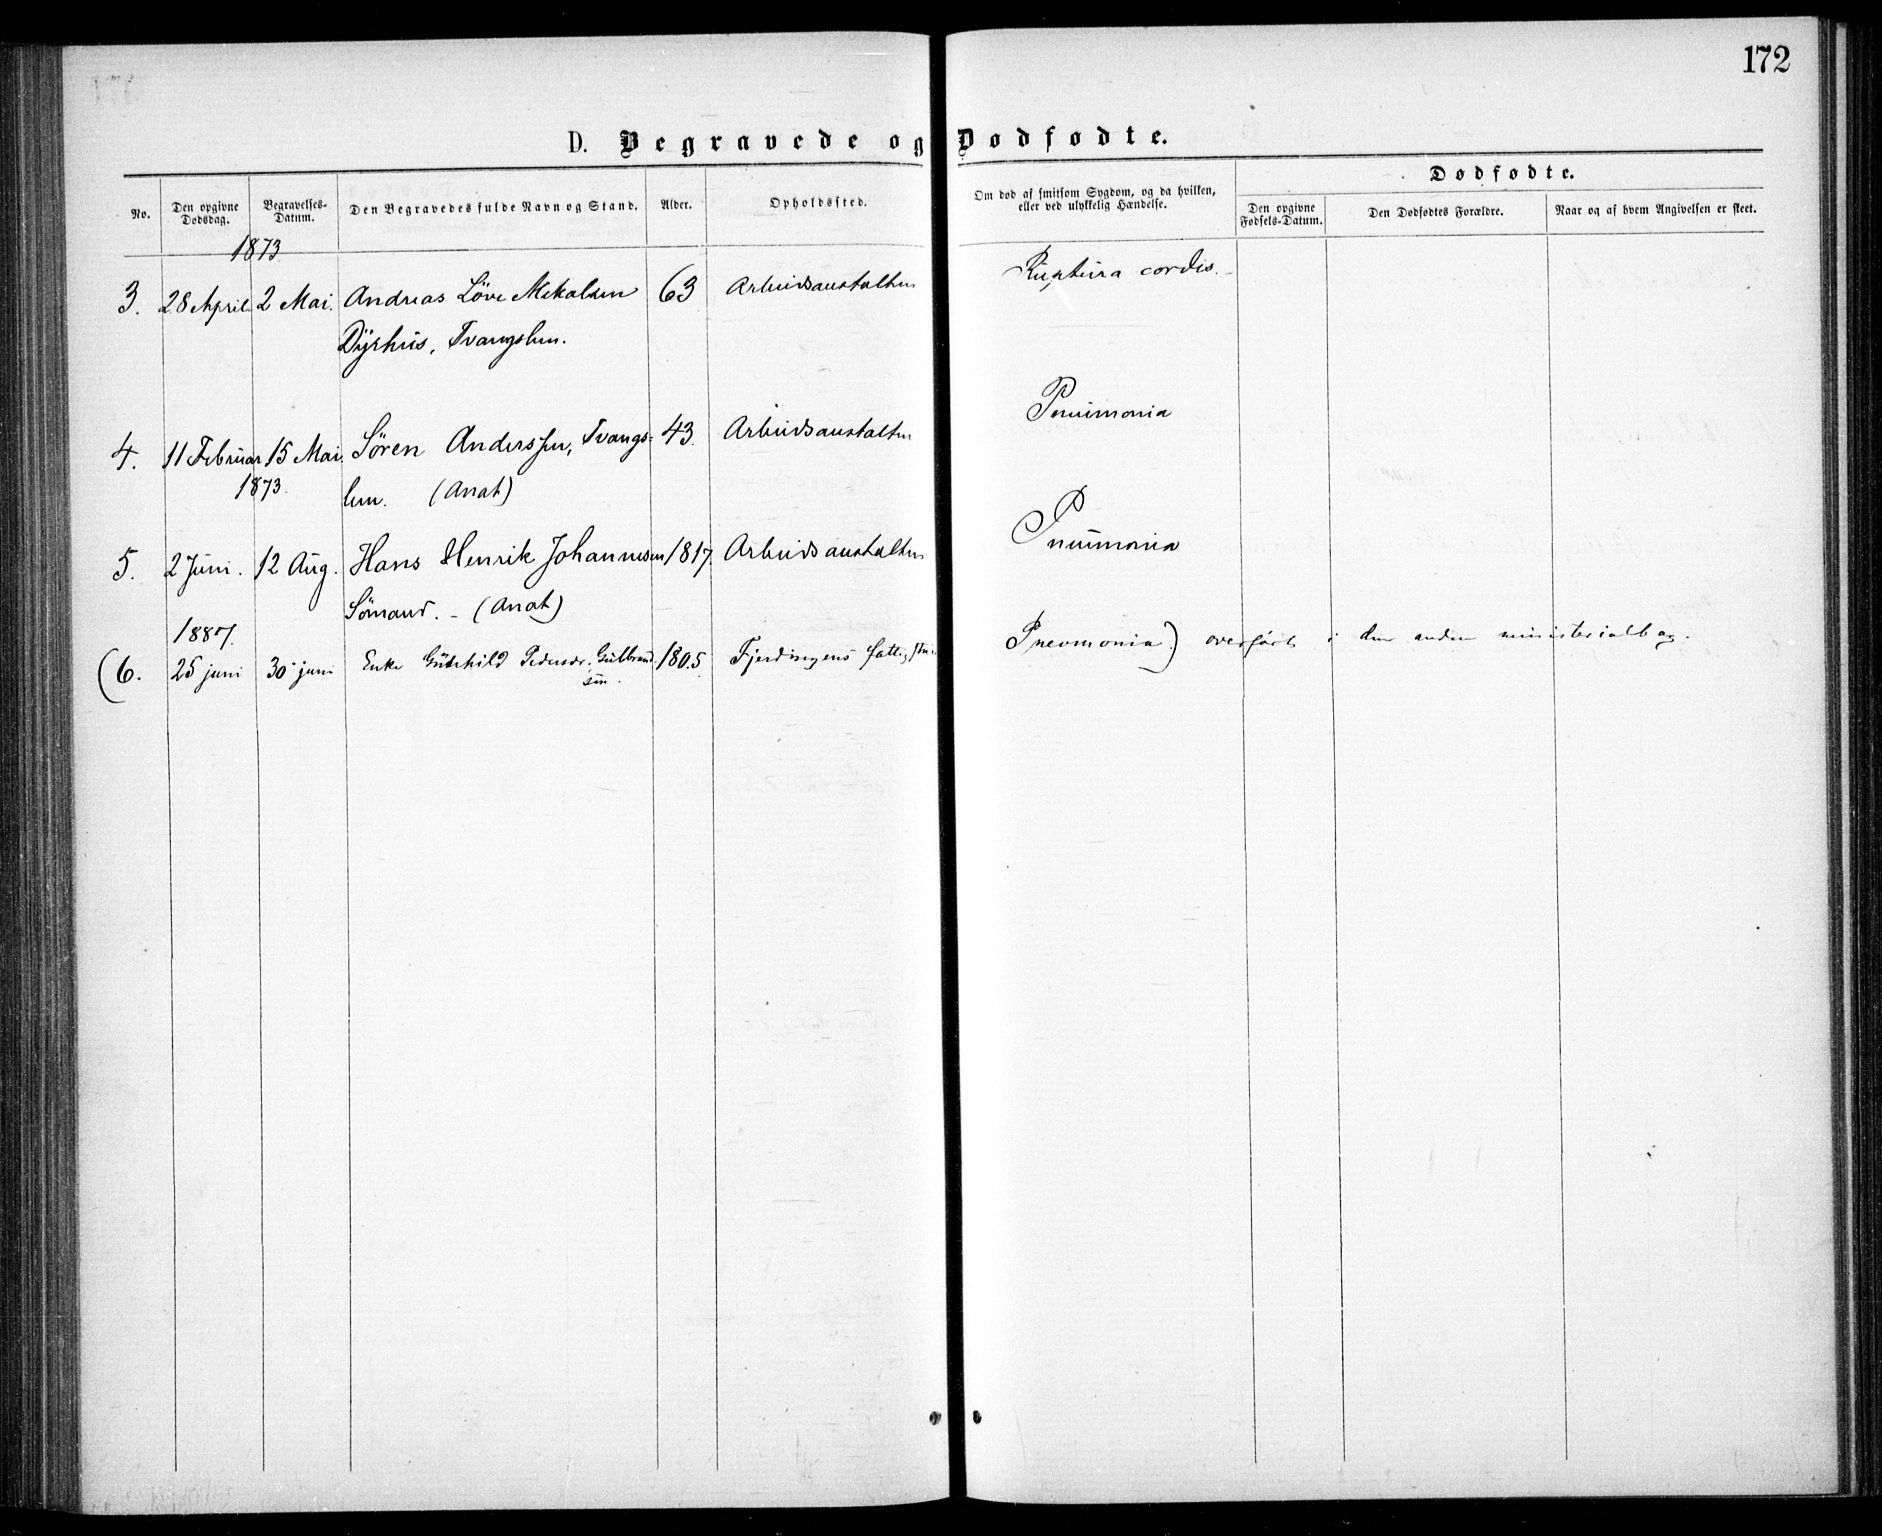 172
D. Begravede og Dødfødte.
No.
Den opgivne Dødsdag.
Begravelses-Datum.
Den Begravedes fulde Navn og Stand.
Alder.
Opholdssted.
Om død af smitsom Sygdom, og da hvilken, eller ved ulykkelig Hændelse.
Dødfødte.
Den opgivne Fødsels-Datum.
Den Dødfødtes Forældre.
Naar og af hvem Angivelsen er skeet.
1873
3. 28 April 2 Mai. Andreas Löve Mekalsen 63 Arbeidsanstalten Ruptura cordis.
Dÿrhus, Tvangslem.
4. 11 Februar 15 Mai. Søren Anderssen, Tvangs- 43. Arbeidsanstalten Pneumonia
1873. lem. (Anat)
5. 2 Juni. 12 Aug. Hans Henrik Johannesen 1817. Arbeidsanstalten Pneumonia
Sömand. - (Anat)
1887.
(6. 25 juni 30 juni Enke Pedersdr. Gulbrand- 1805 Fjerdingens Pneomonia.) overført i den anden ministerialbog.
sen.